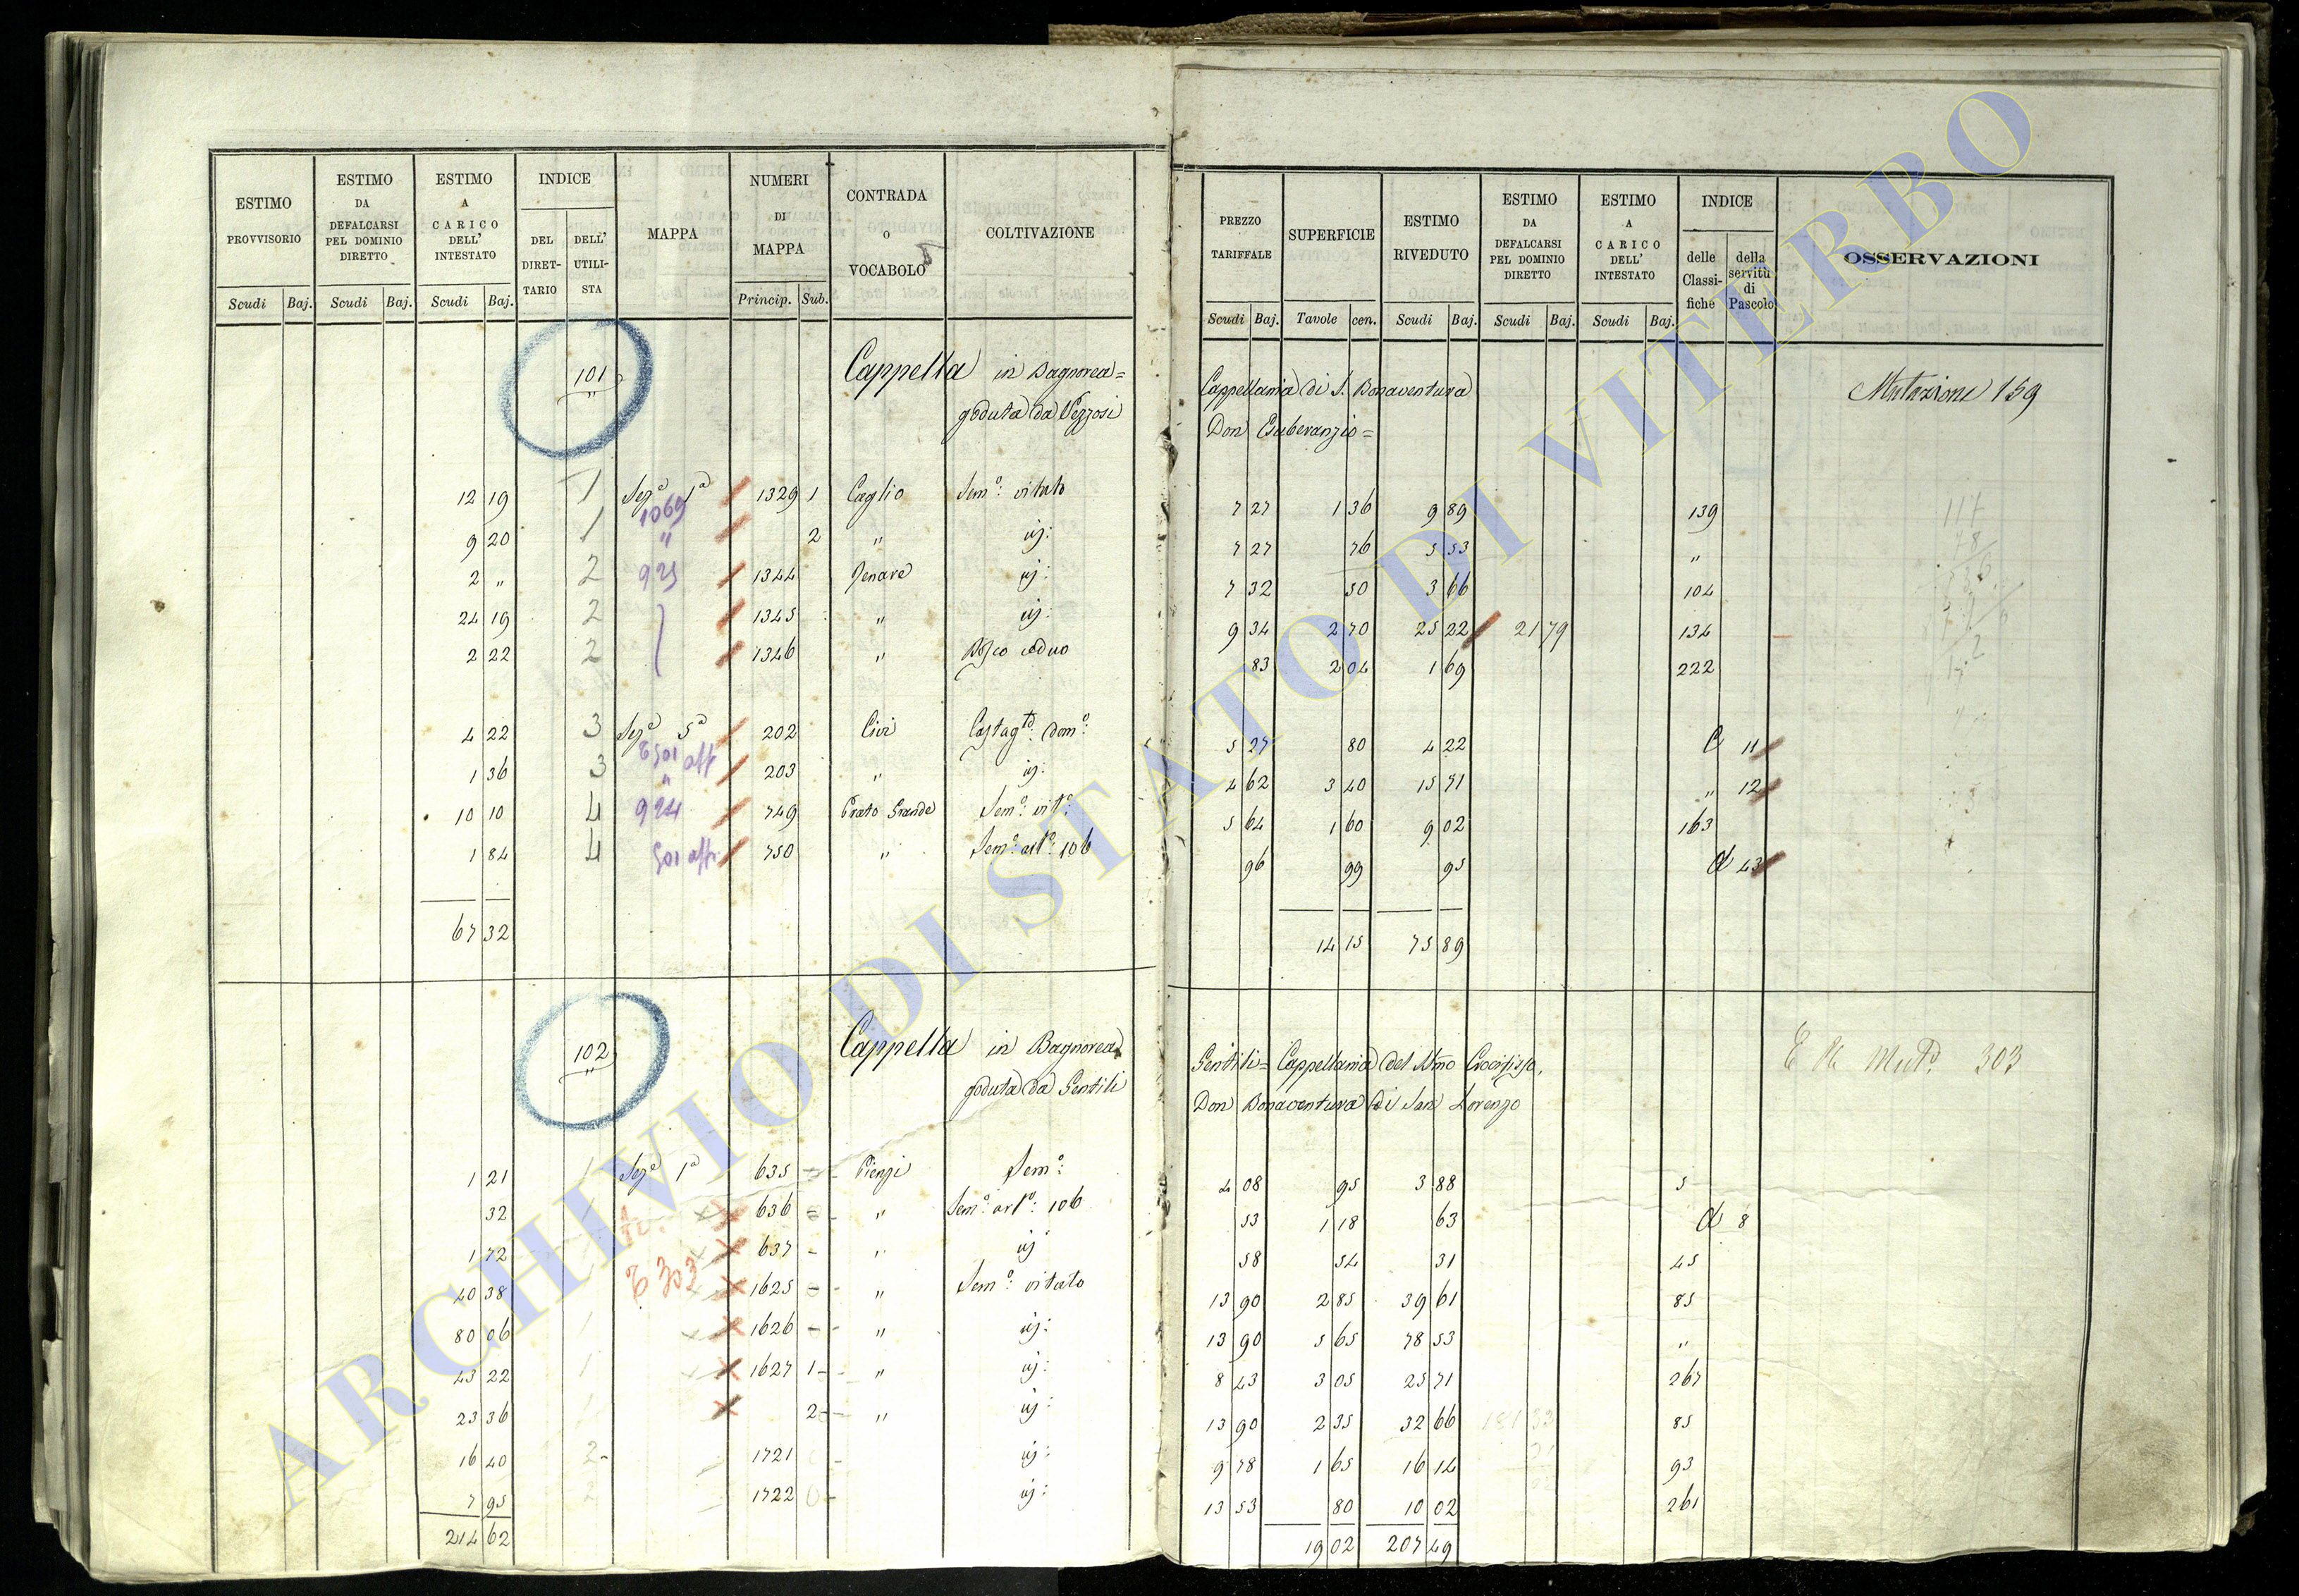 ESTIMO PROVVISORIO
Scudi Baj.
ESTIMO DA DEFALCARSI PEL DOMINIO DIRETTO
Scudi Baj.
ESTIMO A CARICO DELL' INTESTATO
Scudi Baj.
INDICE
DEL DIRET-TARIO
DELL' UTILI-STA
MAPPA
NUMERI DI MAPPA
Princip. Sub.
CONTRADA O VOCABOLO
COLTIVAZIONE
PREZZO TARIFFALE
Scudi Baj.
SUPERFICIE
Tavole cen.
ESTIMO RIVEDUTO
Scudi Baj.
ESTIMO DA DEFALCARSI PEL DOMINIO DIRETTO
Scudi Baj.
ESTIMO A CARICO DELL' INTESTATO
Scudi Baj.
INDICE
delle Classi-fiche
della servitù di Pascolo
OSSERVAZIONI
101 Cappella in Bagnorea= Cappellania di S. Bonaventura Mutazione 159
goduta da Pezzosi Don Euberanzio=
12 19 1 Sez.e 1a 1329 1 Caglio Sem.o vitato 7 27 1 36 9 89 139
1069
9 20 1 " 2 " id: 7 27 76 5 53 "
2 " 2 925 1344 id: 7 32 50 3 66 104
24 19 2 1345 " id: 9 34 2 70 25 22 21 79 134
2 22 2 1346 " Bosco ceduo 83 2 04 1 69 222
4 22 3 Sez.e 5a 202 Civi Castag.to dom.o 5 27 80 4 22 11
1 36 3 " 203 " id: 4 62 3 40 15 71 " 12
10 10 4 924 749 Prato Grande Sem.o vit.o 5 64 1 60 9 02 163
1 84 4 750 " Sem.o art.o 106 96 99 95 43
67 32 14 15 75 89
102 Cappella in Bagnorea Gentili= Cappellania del Smo Crocifisso, 303
goduta da Gentili Don Bonaventura di San Lorenzo
1 21 Sez.e 1a 635 Pienzi Sem.o 4 08 95 3 88 5
32 636 " Sem.o art.o 106 53 1 18 63 8
1 72 637 " id 58 54 31 45
303
40 38 1625 " Sem.o vitato 13 90 2 85 39 61 85
80 06 1626 " id: 13 90 5 65 78 53 "
43 22 1627 1 " id: 8 43 3 05 25 71 267
23 36 2 " id: 13 90 2 35 32 66 85
16 40 2 1721 id: 9 78 1 65 16 14 93
7 95 2 1722 id: 13 53 80 10 02 261
214 62 19 02 207 49
ARCHIVIO DI STATO DI VITERBO